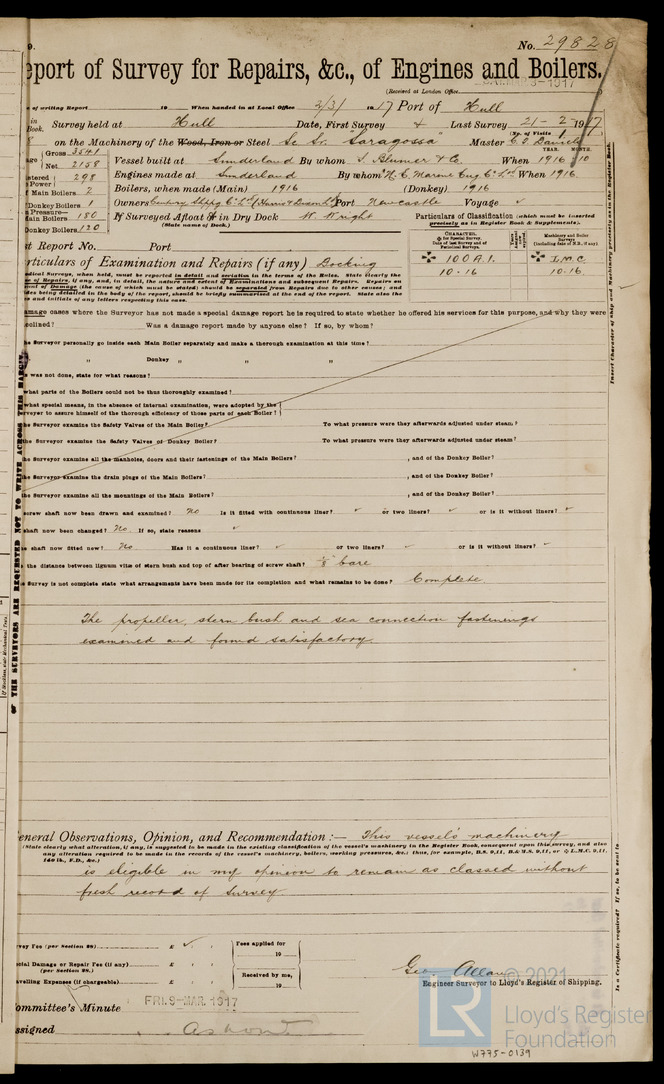 No. 29828
eport of Survey for Repairs, &c., of Engines and Boilers.
(Received at London Office
e of writing Report 19 When handed in at Local Office 2/3/ 1917 Port of Hull
in Book. Survey held at Hull Date, First Survey & Last Survey 21-2-1917
(No. of Visits 1
on the Machinery of the Wood, Iron or Steel Sc Sr. "Saragossa" Master
Gross 3541
Net 2158
Vessel built at Sunderland By whom J. Blumer & Co. When 1916 10
YEAR. MONTH.
298
Engines made at Sunderland By whom N.E. Marine Eng Co Ld. When 1916
Main Boilers 2
Boilers, when made (Main) 1916 (Donkey) 1916
Donkey Boilers 1
Owners Port Newcastle Voyage
Pressure—
ain Boilers 180
If Surveyed Afloat or in Dry Dock W. Wright
(State name of Dock.)
Donkey Boilers 120
Particulars of Classification (which must be inserted precisely as in Register Book & Supplements).
CHARACTER.
Machinery and Boiler Surveys
100 A.1. L.M.C.
10.16 10.16
st Report No. Port
rticulars of Examination and Repairs (if any) Docking
amage cases where the Surveyor has not made a special damage report he is required to state whether he offered his services for this purpose, and why they were
clined? Was a damage report made by anyone else? If so, by whom?
he Surveyor personally go inside each Main Boiler separately and make a thorough examination at this time?
" Donkey " " "
was not done, state for what reasons?
what parts of the Boilers could not be thus thoroughly examined?
what special means, in the absence of internal examination, were adopted by the
veyor to assure himself of the thorough efficiency of those parts of each Boiler?
he Surveyor examine the Safety Valves of the Main Boiler? To what pressure were they afterwards adjusted under steam?
he Surveyor examine the Safety Valves of Donkey Boiler? To what pressure were they afterwards adjusted under steam?
he Surveyor examine all the manholes, doors and their fastenings of the Main Boilers? , and of the Donkey Boiler?
he Surveyor examine the drain plugs of the Main Boilers? , and of the Donkey Boiler?
he Surveyor examine all the mountings of the Main Boilers? , and of the Donkey Boiler?
screw shaft now been drawn and examined? No Is it fitted with continuous liner? or two liners? or is it without liners?
shaft now been changed? No If so, state reasons
e shaft now fitted new? No Has it a continuous liner? or two liners? or is it without liners?
the distance between lignum vitæ of stern bush and top of after bearing of screw shaft? 1/8" bare
e Survey is not complete state what arrangements have been made for its completion and what remains to be done? Complete
The propeller, stern bush and sea connection fastenings
examined and found satisfactory.
eneral Observations, Opinion, and Recommendation :— This vessel's machinery
(State clearly what alteration, if any, is suggested to be made in the existing classification of the vessel's machinery in the Register Book, consequent upon this survey, and also
any alteration required to be made in the records of the vessel's machinery, boilers, working pressures, &c.; thus, for example, B.S. 9,11, B.& M.S. 9,11, or L.M.C. 9,11,
140 lb., F.D., &c.)
is eligible in my opinion to remain as classed without
fresh record of Survey.
vey Fee (per Section 28) £
Fees applied for
19
ecial Damage or Repair Fee (if any) £
(per Section 28.)
Received by me,
avelling Expenses (if chargeable) £
19
Geo. Allan
Engineer Surveyor to Lloyd's Register of Shipping.
ommittee's Minute FRI. 9-MAR. 1917
ssigned As now
OF THE SURVEYORS ARE REQUESTED NOT TO WRITE ACROSS THIS MARGIN
Insert Character of Ship and Machinery precisely as in the Register Book.
Is a Certificate required? If so, to be sent to
© 2021
LR
Lloyd's Register
Foundation
W775-0139